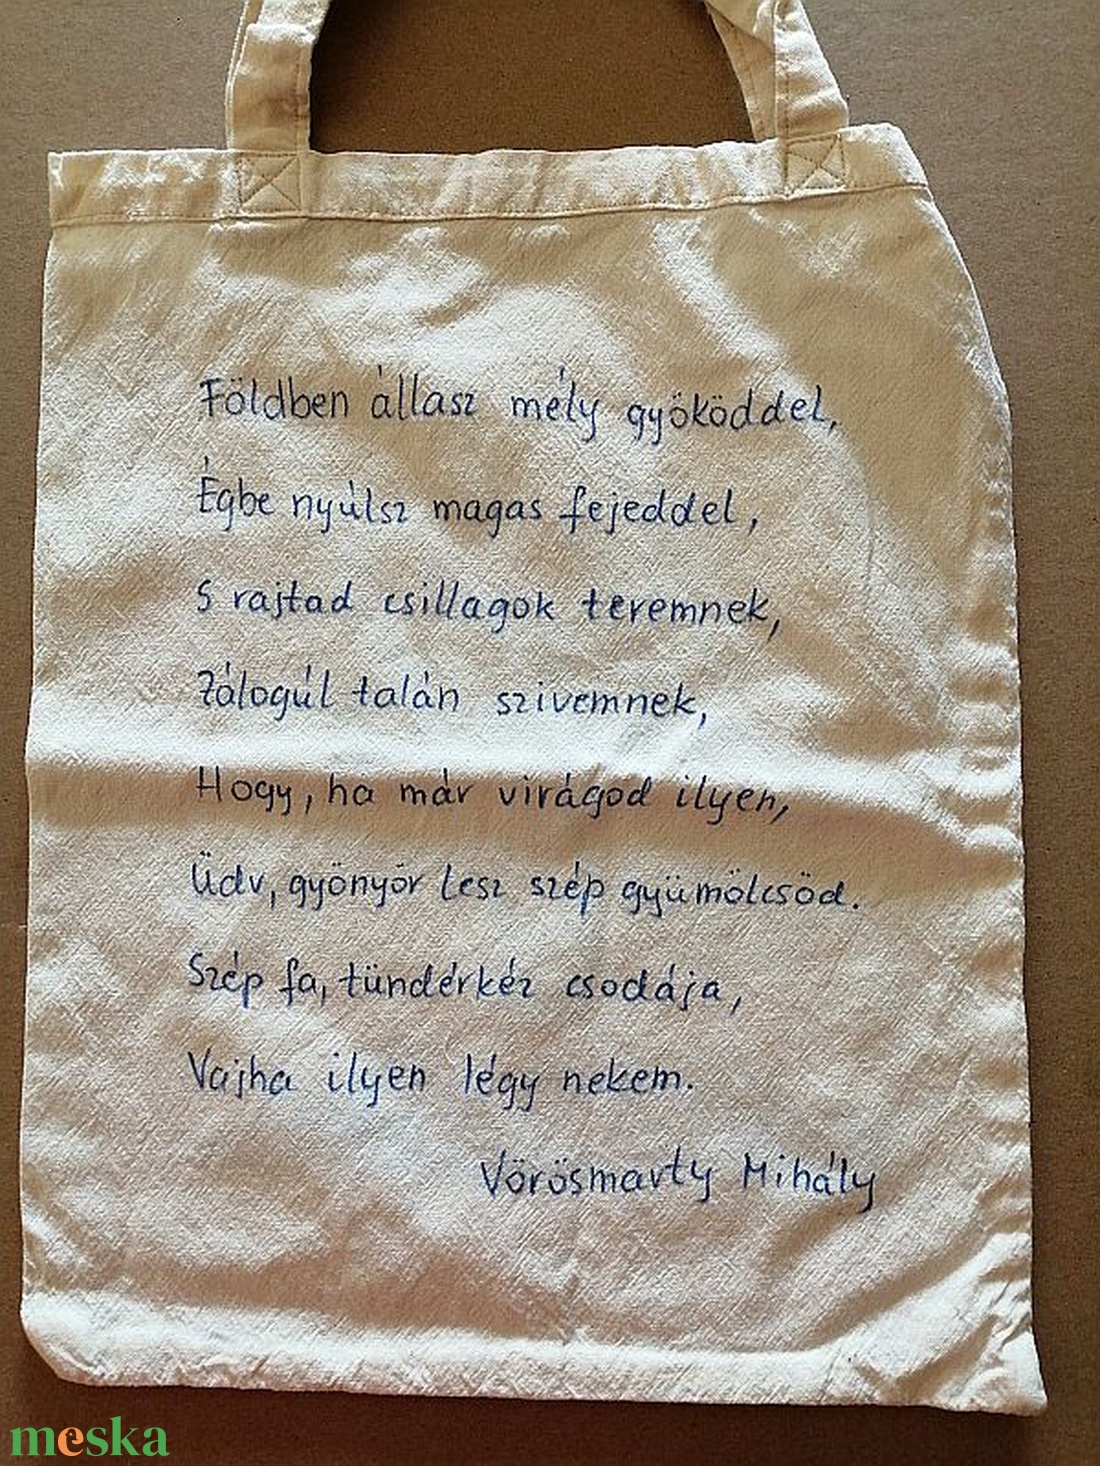 Földben állasz mély gyököddel,
Égbe nyúlsz magas fejeddel,
S rajtad csillagok teremnek,
Zálogúl talán szivemnek,
Hogy, ha már virágod ilyen,
Üdv, gyönyör lesz szép gyümölcsöd.
Szép fa, tündérkéz csodája,
Vajha ilyen légy nekem.
Vörösmarty Mihály
meska